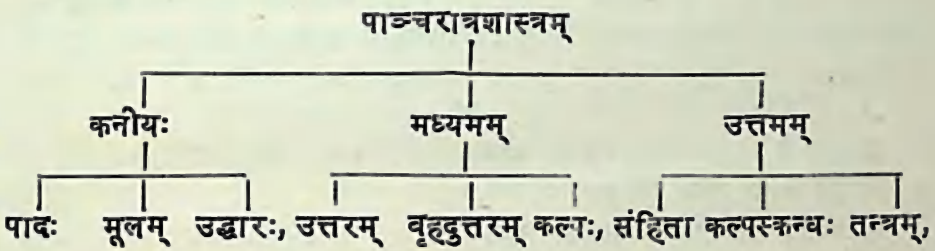 पाञ्चरात्रशास्त्रम्
कनीयः मध्यमम् उत्तमम्
पादः मूलम् उद्धारः, उत्तरम् वृहदुत्तरम् कल्पः, संहिता कल्पस्कन्धः तन्त्रम्,